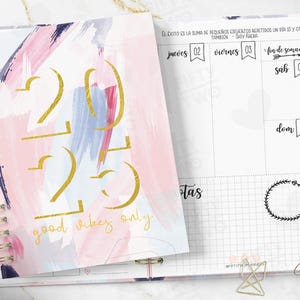 20
25
good vibes only
EL ÉXITO ES LA SUMA DE PEQUEÑOS ESFUERZOS REPETIDOS UN DÍA SÍ Y OTRO
TAMBIÉN
jueves 02 viernes 03 fin de semana
sáb
dom
tas